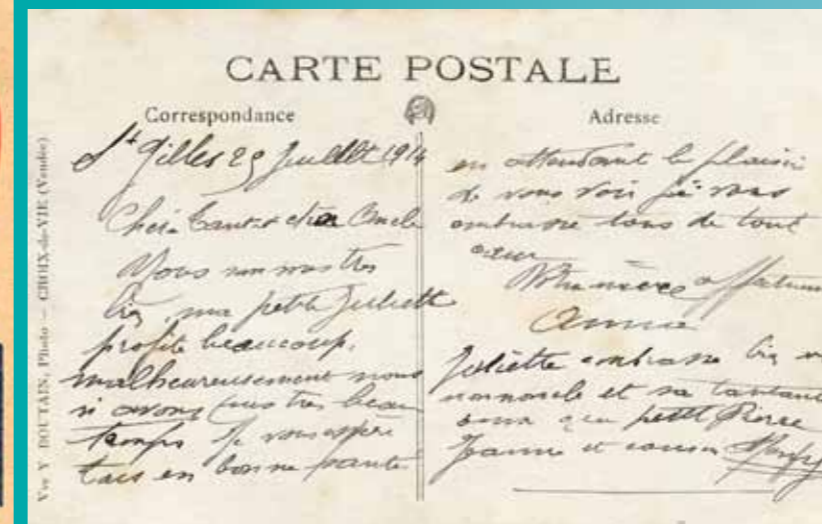 CARTE POSTALE
Correspondance
Adresse
Vve Y BOUTAIN, Photo — CROIX-de-VIE (Vendée)
St Gilles 29 Juillet 1914
Chère Tante et cher Oncle
Nous
bien, ma petite Juliette
profite beaucoup,
malheureusement nous
n'avons pas très beau
temps Je vous espère
tous en bonne santé
en attendant le plaisir
de vous voir je vous
embrasse tous de tout
cœur
Votre nièce
Annie
Juliette embrasse bien
et sa tantante
petit Pierre
Jeanne et cousin